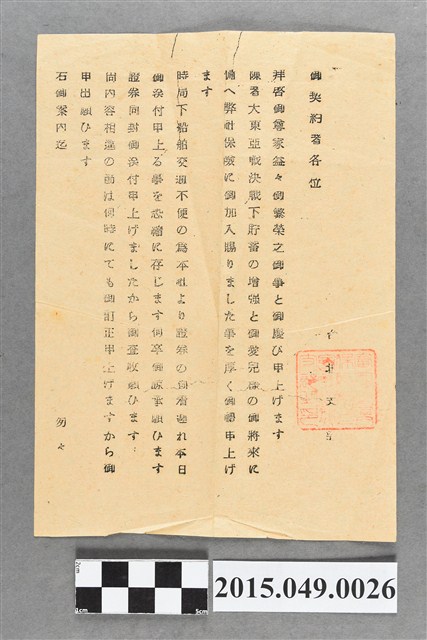 御契約者各位
台北支店
拝啓御尊家益々御繁栄之御事と御慶び申上げます
陳者大東亜戦決戦下貯蓄の増強と御愛児様の御将来に
備へ弊社保険に御加入賜りました事を厚く御礼申上げ
ます
時局下船舶交通不便の為本社より証券の到着遅れ本日
御送付申上る事を恐縮に存じます何卒御諒承願ひます
証券同封御送付申上げましたから御査収願ひます
尚内容相違の節は何時にても御訂正申上げますから御
申出願ひます
右御案内迄
匆々
2cm
1cm
5cm
2015.049.0026